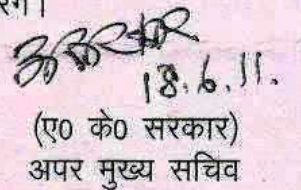 18.6.11.
(ए0 के0 सरकार)
अपर मुख्य सचिव